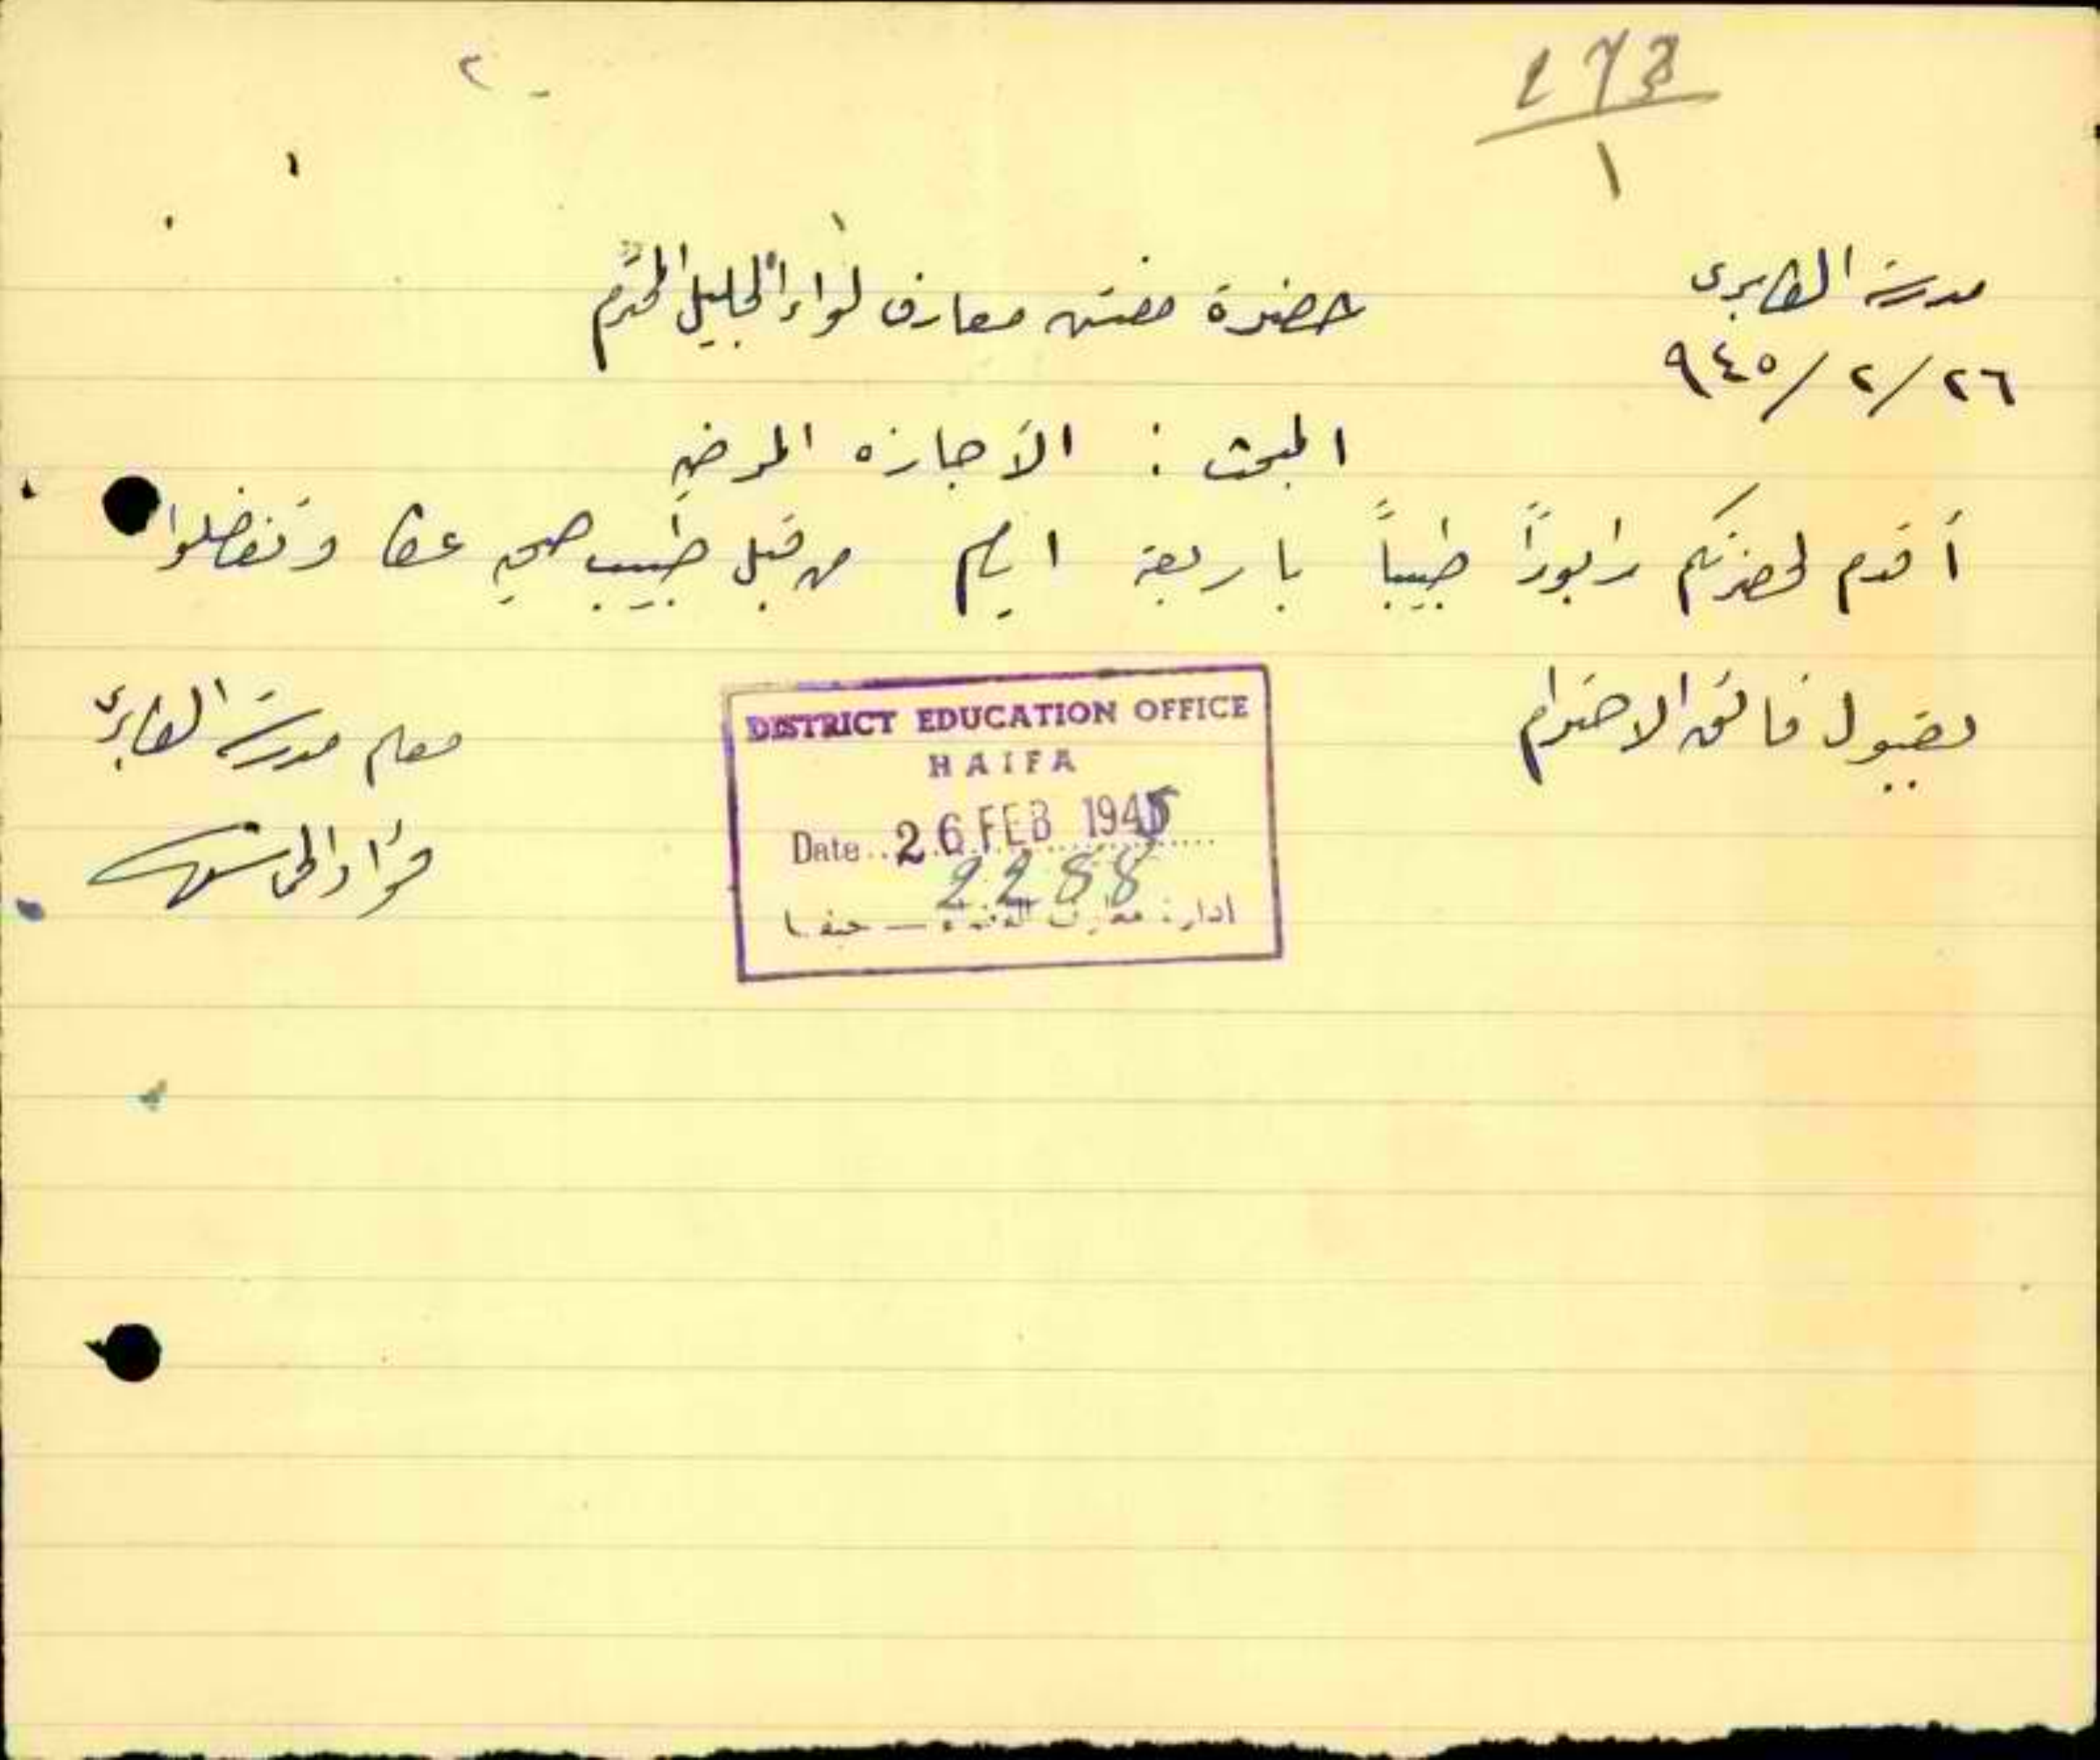 273
1
مدرسة الكابري
٢٦/٢/٩٤٥
حضرة مفتش معارف لواء الجليل المحترم
المبحث : الأجازه المرضيه
أقدم لحضرتكم رابوراً طبياً باربعة ايام من قبل طبيب صحي عكا وتفضلوا
بقبول فائق الاحترام
معلم مدرسة الكابري
فؤاد
DISTRICT EDUCATION OFFICE
HAIFA
Date 26 FEB 1945
2288
ادارة معارف – حيفا